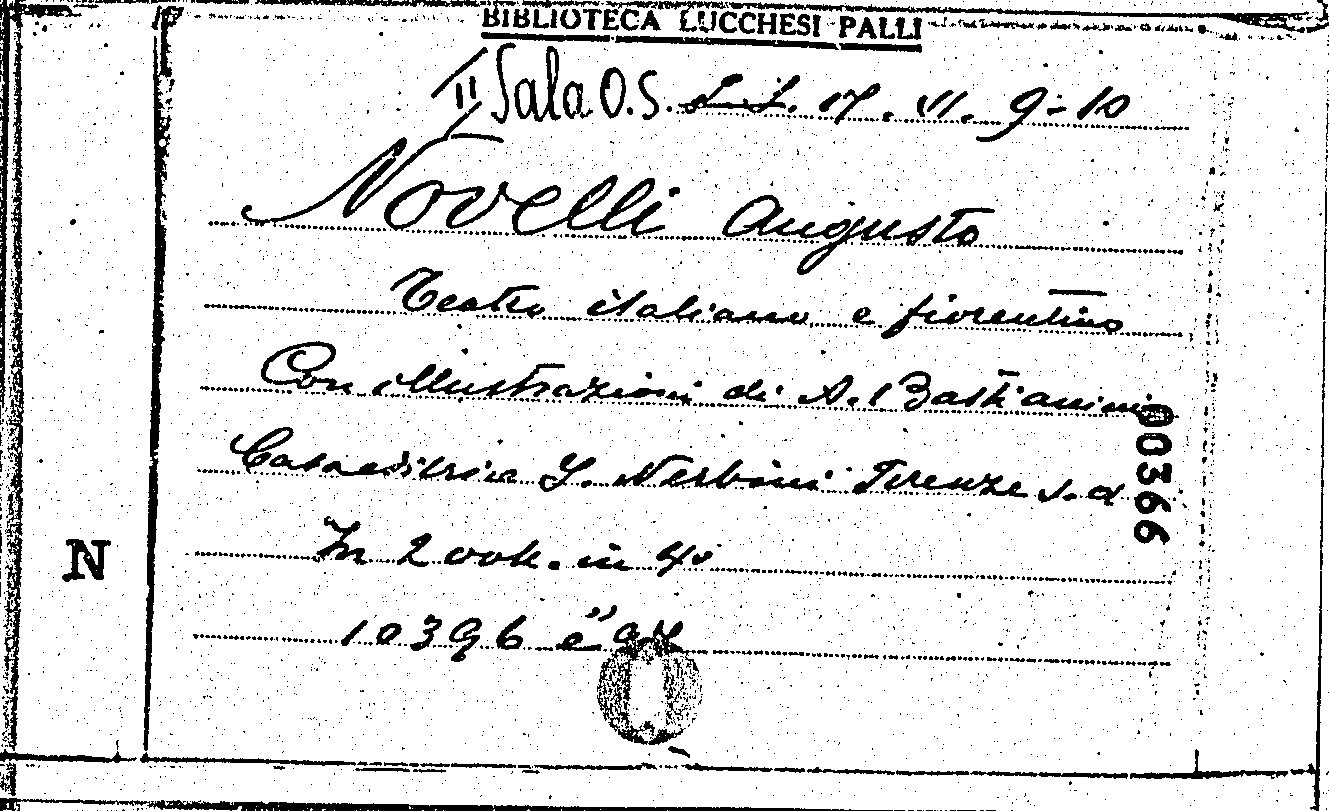 BIBLIOTECA LUCCHESI PALLI
II Sala O.S. L.L. 17. VI. 9-10
Novelli Augusto
Teatro italiano e fiorentino
Con illustrazioni di A. Bastianini
Casa editrice G. Nerbini Firenze s. d.
00366
N
In 2 voll. in 4°
10396 e